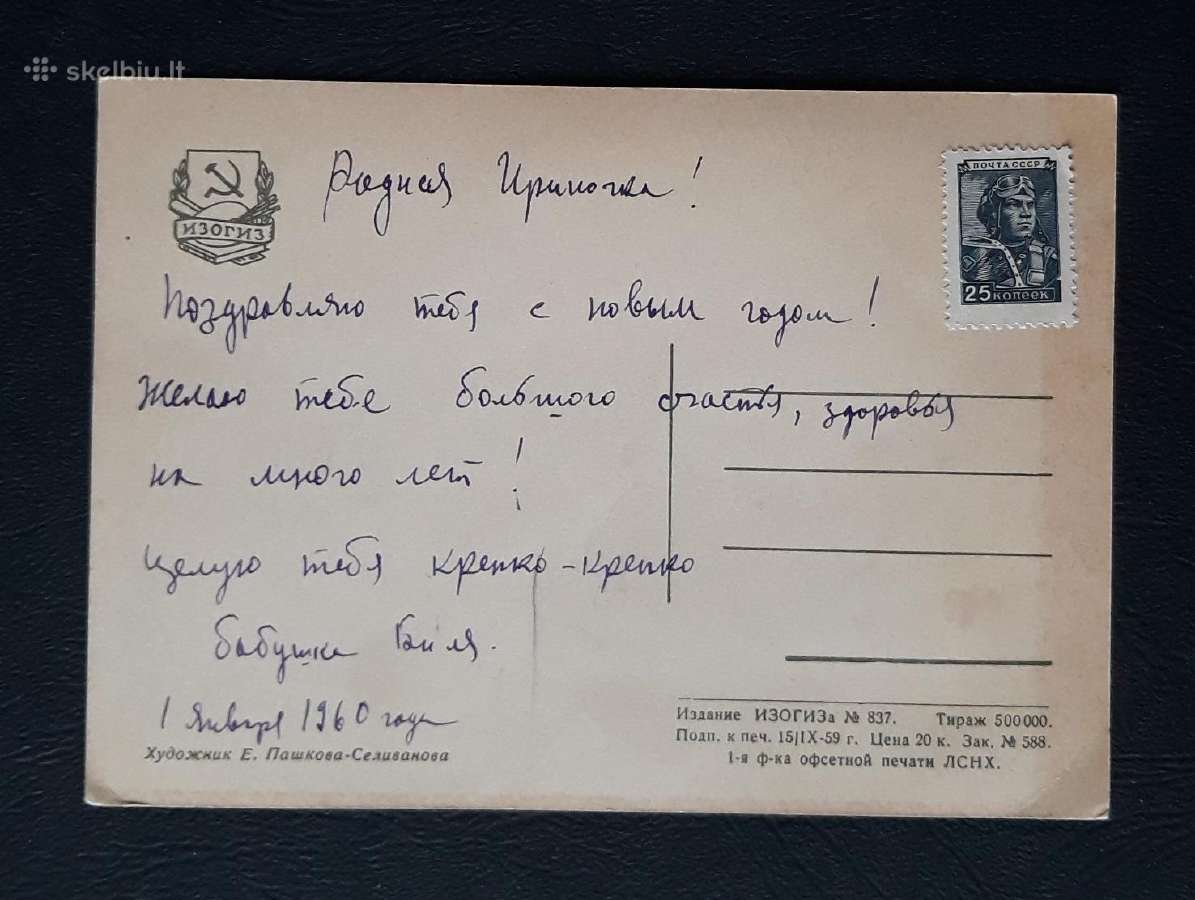 skelbiu.lt
ИЗОГИЗ
Родная Ириночка!
ПОЧТА СССР
25 КОПЕЕК
Поздравляю тебя с новым годом!
Желаю тебе большого счастья, здоровья
на много лет!
Целую тебя крепко-крепко
бабушка
1 января 1960 года
Художник Е. Пашкова-Селиванова
Издание ИЗОГИЗа № 837. Тираж 500 000.
Подп. к печ. 15/IX-59 г. Цена 20 к. Зак. № 588.
1-я ф-ка офсетной печати ЛСНХ.